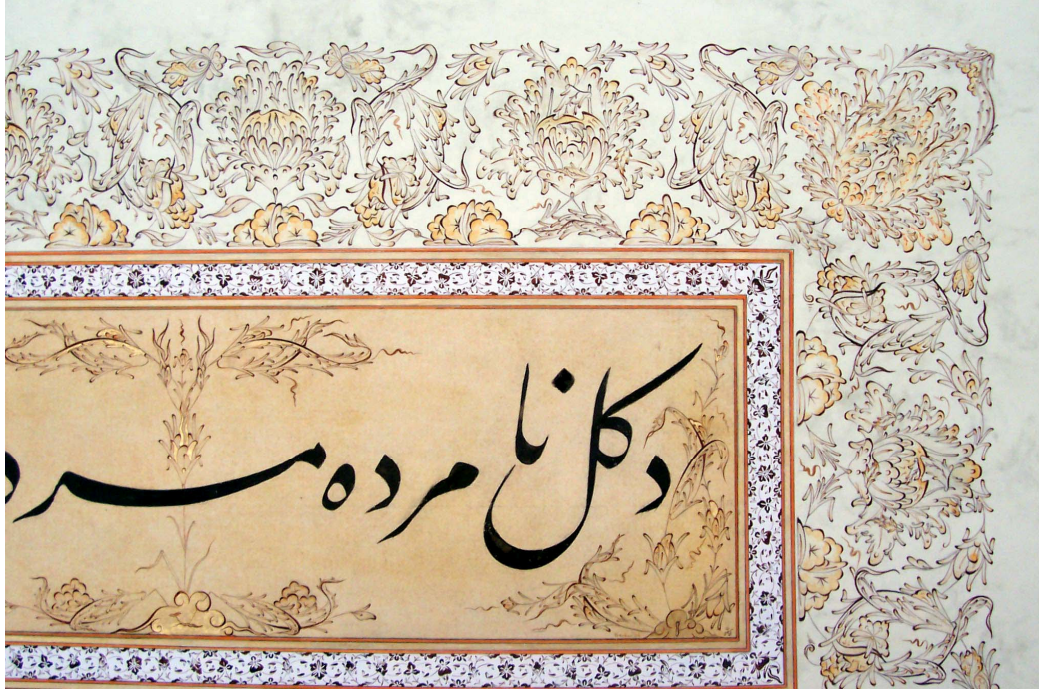 د کل نا مرده مرد